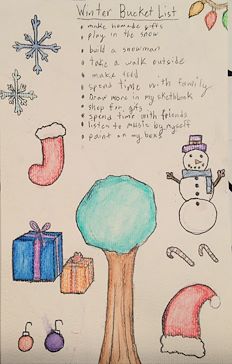 Winter Bucket List
• make homemade gifts
• play in the snow
• build a snowman
• take a walk outside
• make food
• spend time with family
• Draw more in my sketchbook
• shop for gifts
• spend time with friends
• listen to music by myself
• paint on my boxes